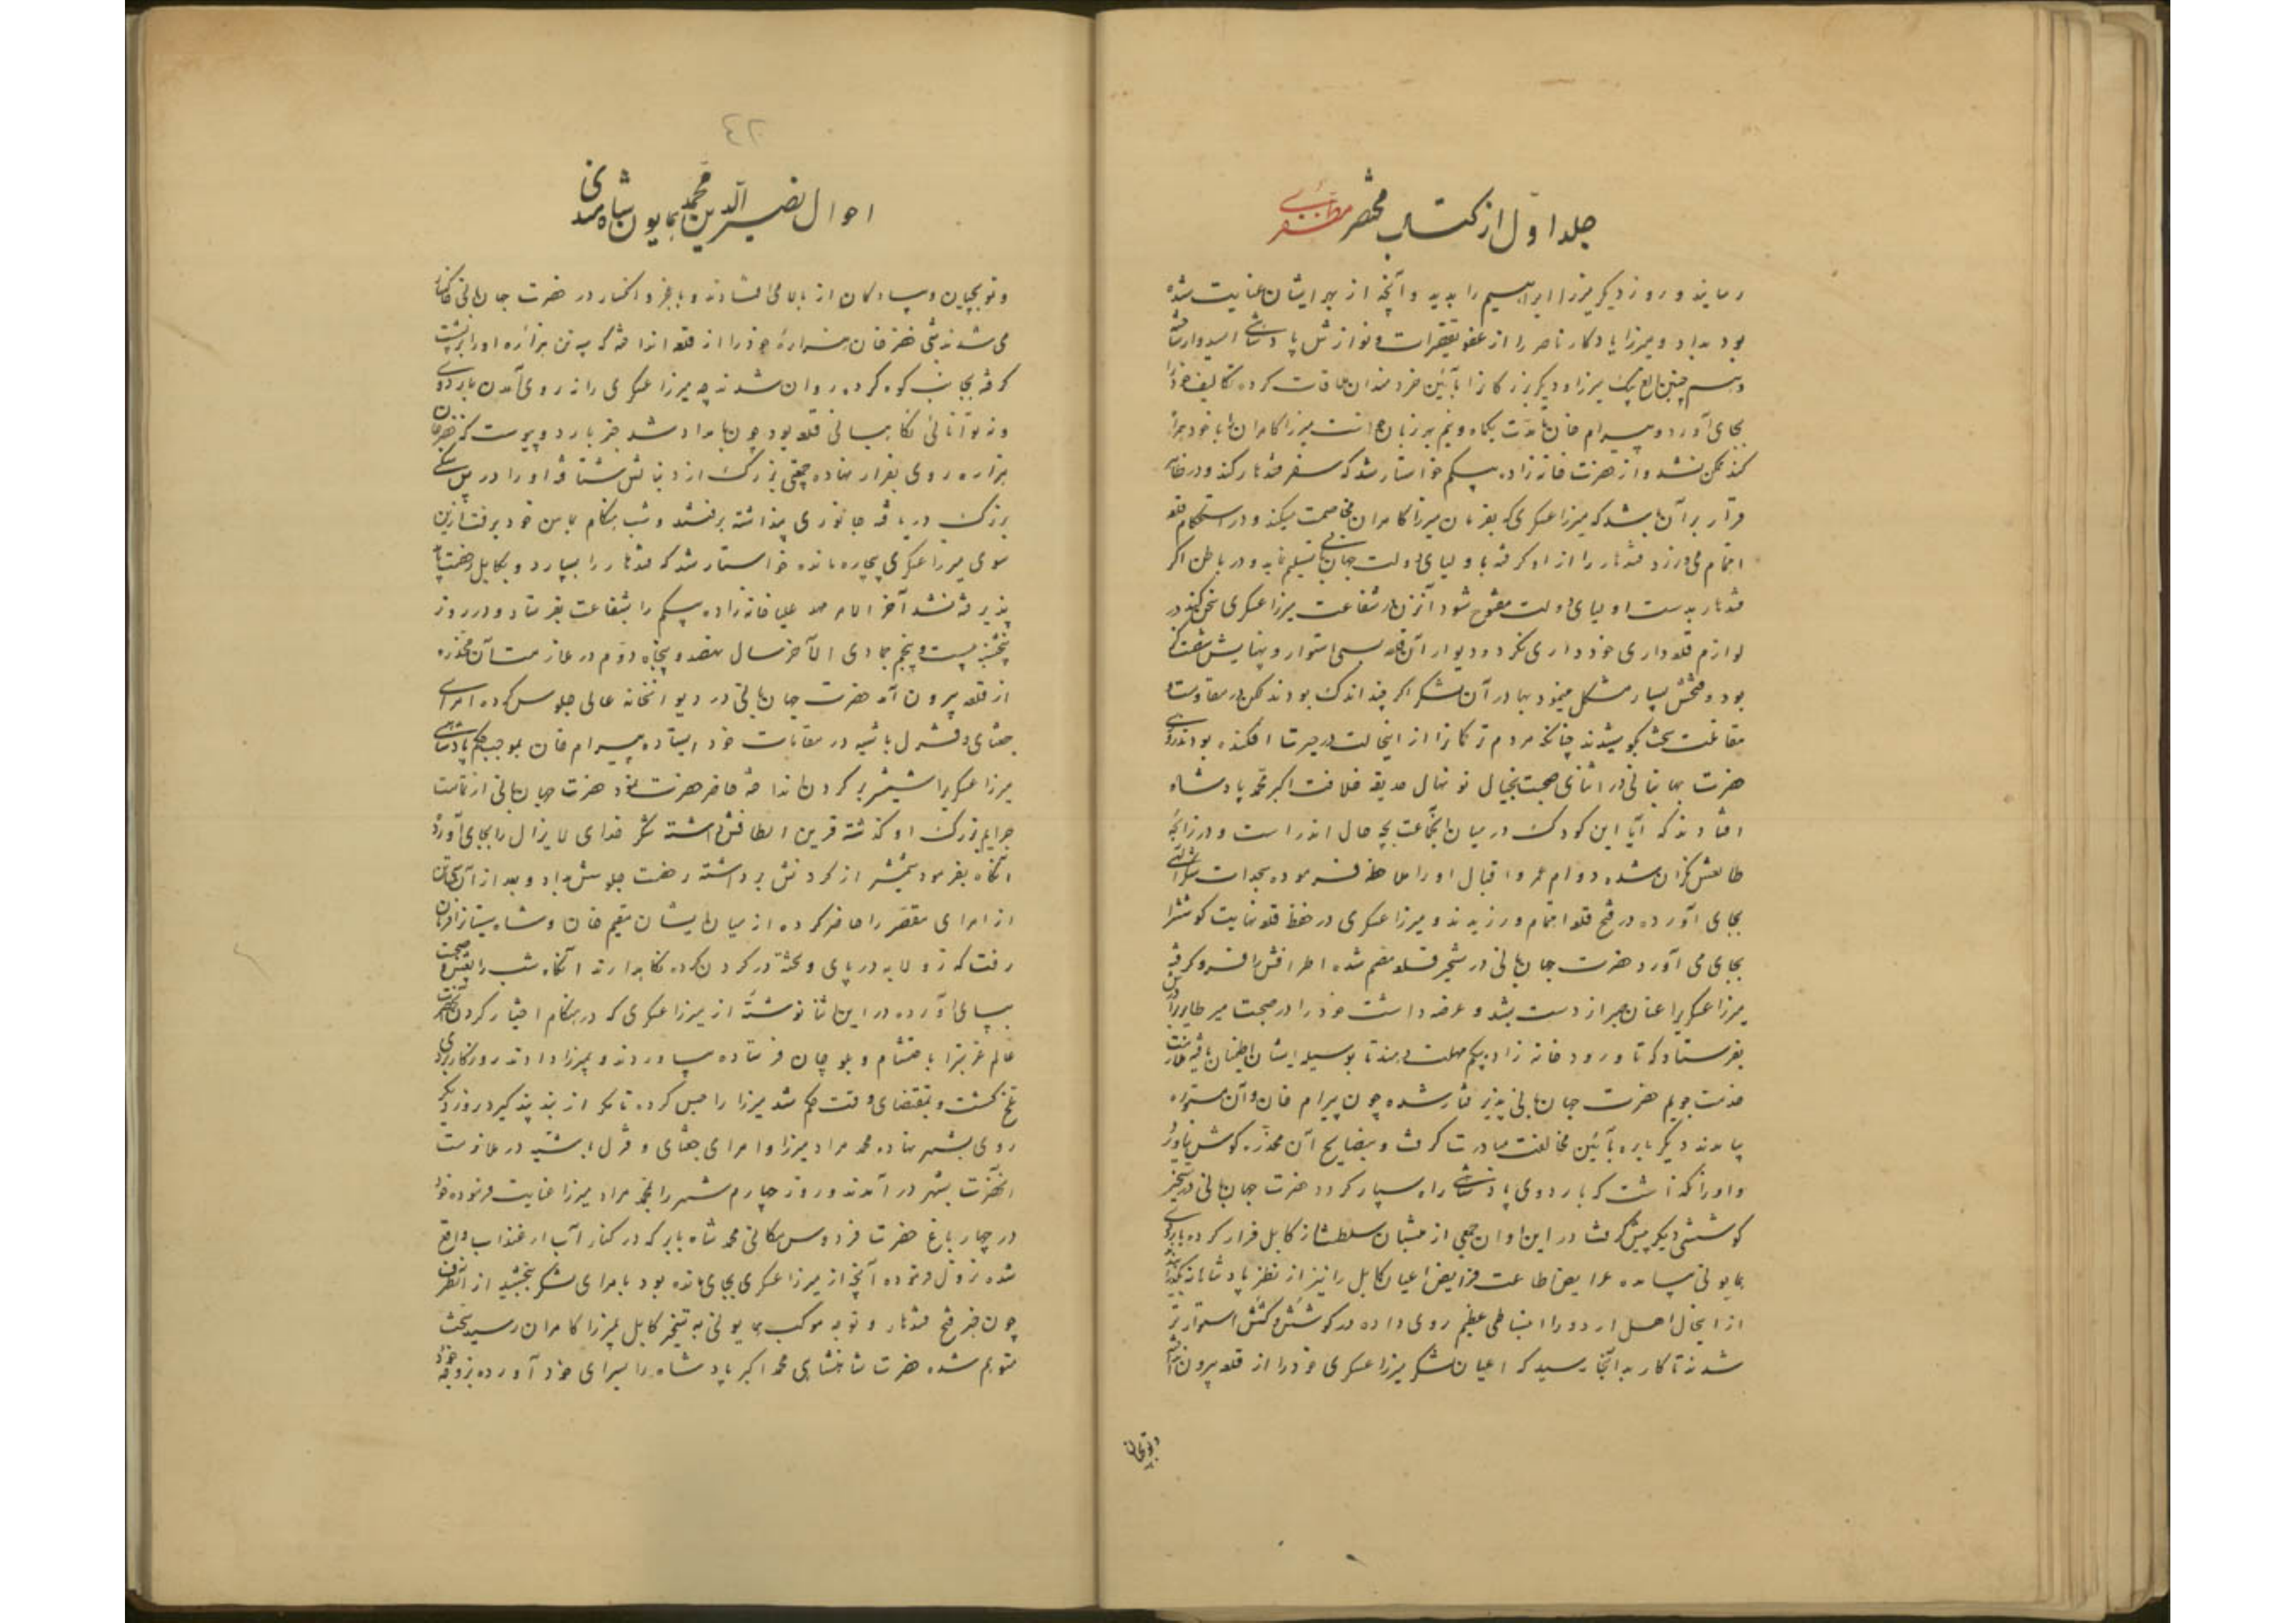 جلد اوّل از کتاب مختصر مظفری
رسانید و روز دیگر میرزا ابراهیم را بدید و آنچه از بهر ایشان عنایت شده
بود بداد و میرزا یادکار ناصر را از عفو تقصیرات و نوازش پادشاهی امیدوار ساخته
و همچنین الغ بیک میرزا و دیگر بزرکانرا بآئین خردمندان ملاقات کرده تکالیف خود را
بجای آورد و بیرام خان تا مدّت یکماه و نیم هر زبان میرزا کامران را با خود همراه
کند ممکن نشد و از حضرت خانه زاده بیکم خواستار شد که سفر قندهار کند و در ظاهر
قرار بر آن باشد که میرزا عسکری که بفرمان میرزا کامران مخاصمت میکند و در استحکام قلعه
اهتمام می‌ورزد قندهار را از او کرفته باولیای دولت جهانبانی تسلیم نماید و در باطن اکر
قندهار بدست اولیای دولت مفتوح شود آنزمان در شفاعت میرزا عسکری سخن کند در
لوازم قلعه‌داری خودداری نکرد و دیوار آن قلعه بسی استوار و پهنایش شصت کز
بود و فتحش بسیار مشکل مینمود بهادر آن لشکر اکر چند اندک بودند لکن در مقاومت و
مقاتلت سخت میکوشیدند چنانکه مردم ترکمانرا از اینحالت در حیرت افکنده بودند روزی
حضرت جهانبانی در اثنای صحبت بخیال نونهال حدیقه خلافت اکبر محمّد پادشاه
افتادند که آیا این کودک در میان اینجماعت بچه حال اندر است و در زایچه
طالعش نکران شده دوام عمر و اقبال او را ملاحظه فرموده سجدات شکر الهی
بجای آورده در فتح قلعه اهتمام ورزیدند و میرزا عسکری در حفظ قلعه نهایت کوشش را
بجای می آورد حضرت جهانبانی در تسخیر قلعه مصمم شده اطرافش را فرو کرفته
میرزا عسکریرا عنان صبر از دست بشد و عرضه داشت خود را در صحبت میر طاهر
بفرستاد که تا ورود خانه زاده بیکم مهلت دهند تا بوسیله ایشان اطمینان یافته ملازمت
خدمت جویم حضرت جهانبانی پذیرفتار شده چون بیرام خان و آن مستوره
بیامدند دیکر باره بآئین مخالفت مبادرت کرفت و بنصایح آن مخدّره کوش نیاورد
و او را نکذاشت که باردوی پادشاهی راه سپار کردد حضرت جهانبانی در تسخیر
کوششی دیکر پیش کرفت در این اوان جمعی از منتسبان سلطنت از کابل فرار کرده باردوی
همایونی رسانده عرایض اطاعت فرایض اعیان کابل را نیز از نظر پادشاهانه
از اینحال اهل اردو را انبساطی عظیم روی داده در کوشش و کشش استوارتر
شدند تا کار بدانجا رسید که اعیان لشکر میرزا عسکری خود را از قلعه بیرون انداخته
و توپچیان
٤٢
احوال نصیر الدّین محمّد همایون شاه هندی
و توپچیان و پیادکان از بالا می افتادند و با عجز و انکسار در حضرت جهانبانی خاکسار
می شدند شبی خضر خان هزاره خود را از قلعه انداخته که چند تن هزاره او را بر پشت
کرفته بجانب کوه کرده روان شدند چه میرزا عسکری را نه روی آمدن باردوی
و نه توانائی نکاهبانی قلعه بود چون بامداد شد خبر باردو پیوست که خضر خان
هزاره روی بفرار نهاده جمعی بزرک از دنبالش شتافته او را در پس سنکی
بزرک دریافته جانوری پنداشته برفتند و شب هنکام بمامن خود برفت از این
سوی میرزا عسکری بیچاره مانده خواستار شد که قندهار را بسپارد و بکابل رخصت یابد
پذیرفته نشد آخر الامر مهد علیا خانه زاده بیکم را بشفاعت بفرستاد و در روز
پنجشنبه بیست و پنجم جمادی الآخر سال نهصد و پنجاه دوّم در ملازمت آن مخدّره
از قلعه بیرون آمد حضرت جهانبانی در دیوانخانه عالی جلوس کرده امرای
جغتای و قزل باشیه در مقامات خود ایستاده بیرام خان بموجب حکم پادشاهی
میرزا عسکریرا شمشیر بر کردن انداخته حاضر حضرت نمود حضرت جهانبانی از تمامت
جرایم بزرک او کذشته قرین الطافش داشته شکر خدای لایزال را بجای آورد
آنکاه بفرمود شمشیر از کردنش برداشته رخصت جلوسش بداد و بعد از آن
از امرای مقصّر را حاضر کرده از میان ایشان مقیم خان و شاه سیستانی را فرمان
رفت که زولانه در پای و تخته در کردن کرده نکاهدارند آنکاه شب را بعیش و صحبت
بپای آورده در این اثنا نوشته از میرزا عسکری که در هنکام اختیار کردن
عالم غربترا باحتشام و بلوچان فرستاده بیاوردند و بمیرزا دادند روزکار بر وی
تلخ کشت و بمقتضای وقت حکم شد میرزا را حبس کرده تا مکر از بند پند کیرد روز دیکر
روی بشهر نهاده محمد مراد میرزا و امرای جغتای و قزل باشیه در ملازمت
آنحضرت بشهر در آمدند و روز چهارم شهر را بمحمد مراد میرزا عنایت فرموده خود
در چهار باغ حضرت فردوس مکانی محمد شاه بابر که در کنار آب ارغنداب واقع
شده نزول فرموده آنچه از میرزا عسکری بجای مانده بود بامرای لشکر بخشید از آنطرف
چون خبر فتح قندهار و توجه موکب همایونی به تسخیر کابل بمیرزا کامران رسید سخت
متوهم شده حضرت شاهنشاهی محمد اکبر پادشاه را بسرای خود آورده بزوجه خود